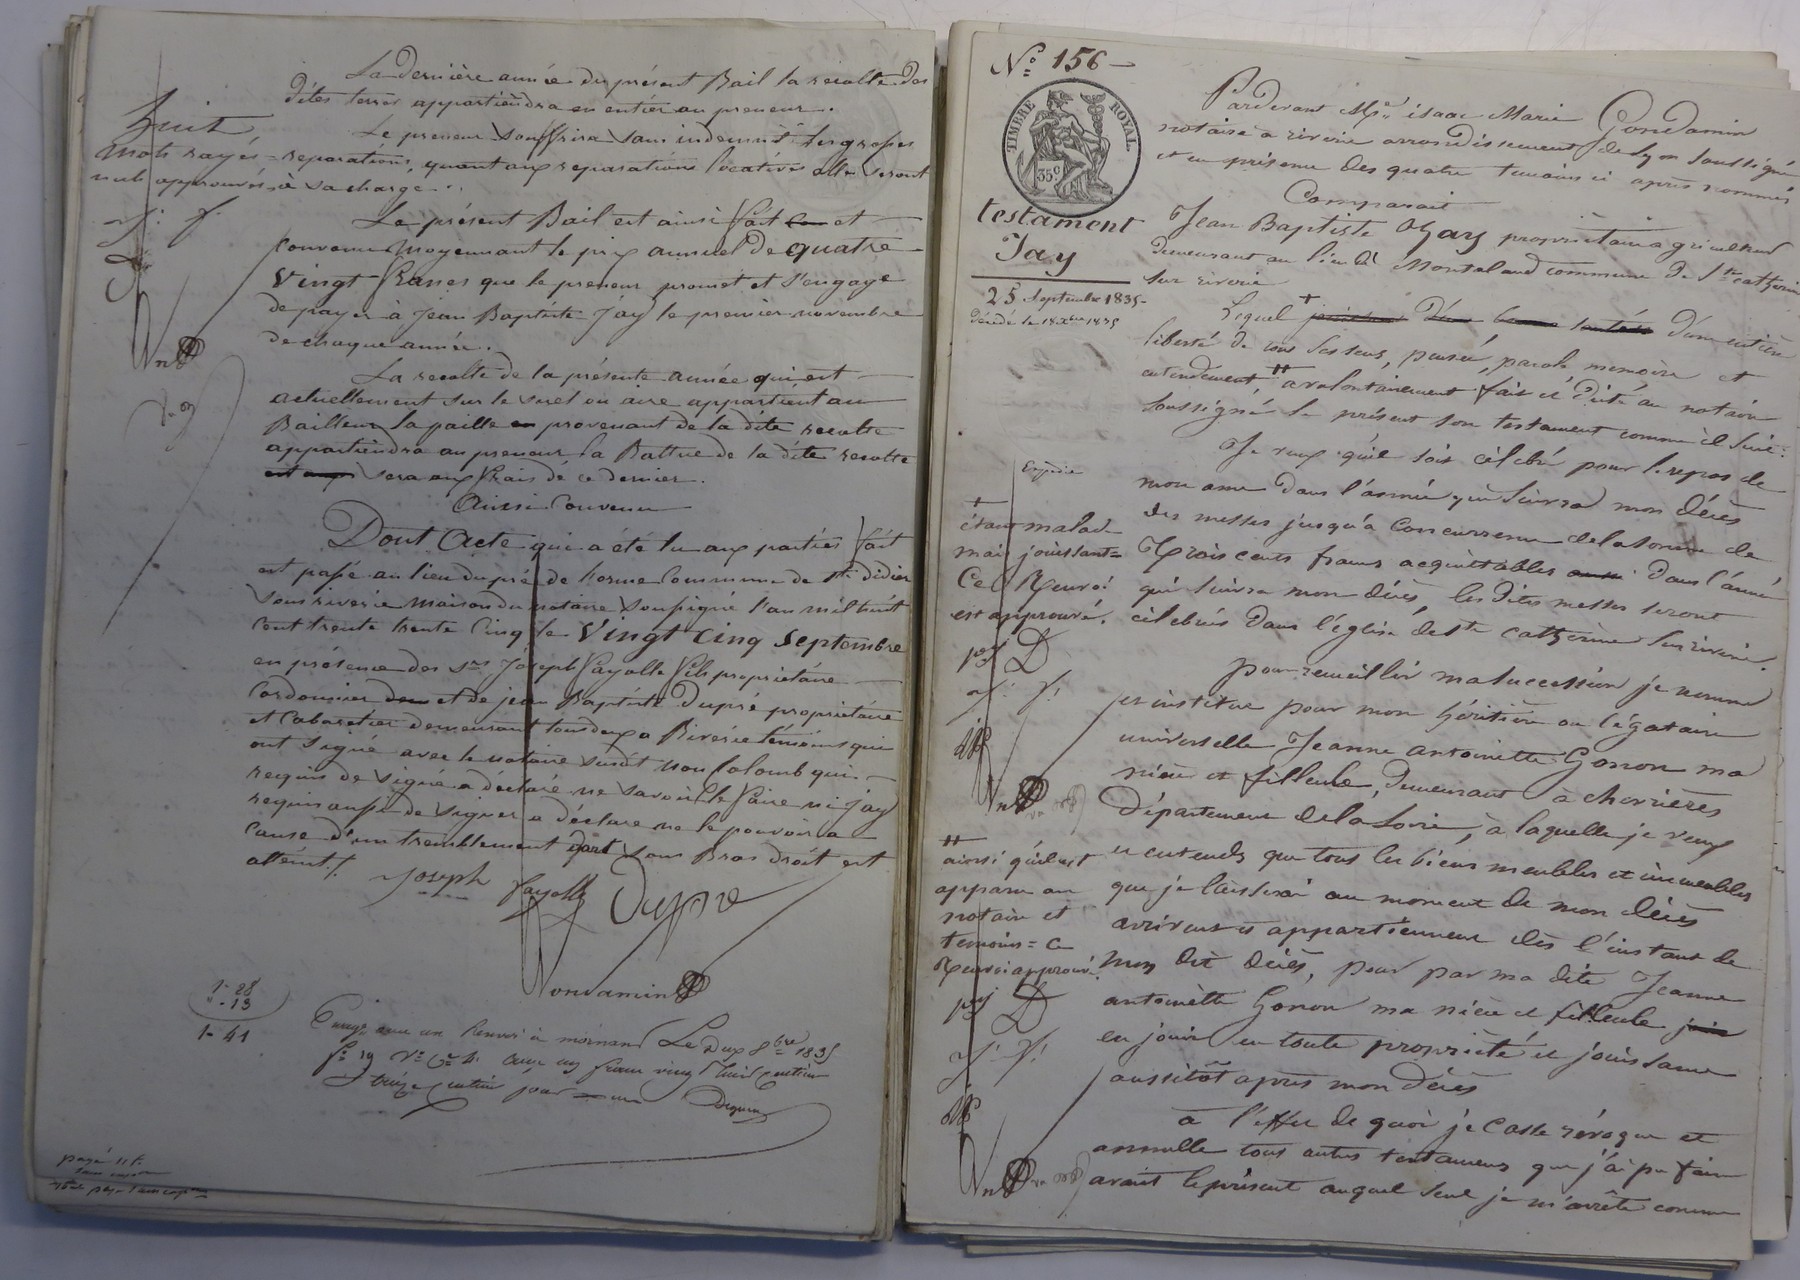 La dernière année du présent Bail la récolte des
dites terres appartiendra en entier au preneur.
Le preneur souffrira sans indemnité les grosses
reparations, quant aux reparations locatives elles seront
à sa charge.
huit
mots rayés =
nuls approuvés
J. f.
Le présent Bail est ainsi fait et
convenu moyennant le prix annuel de quatre
Vingt francs que le preneur promet et s'engage
de payer à Jean Baptiste Jay le premier novembre
de chaque année.
La recolte de la présente année qui est
actuellement sur le suel ou aire appartient au
Bailleur la paille provenant de la dite recolte
appartiendra au preneur la Battue de la dite recolte
sera aux frais de ce dernier.
Ainsi Convenu
Dont Acte qui a été lu aux parties fait
et passé au lieu du pré de horme Commune de St didier
sous riverie maison du notaire soussigné l'an mil huit
cent trente trente cinq le Vingt cinq Septembre
en présence des srs Joseph fayolle fils propriétaire
cordonnier et de jean Baptiste Dupré propriétaire
et cabaretier demeurant tous deux a Riverie témoins qui
ont signé avec le notaire susdit non Colomb qui
requis de signer a déclaré ne savoir le faire ni jay
requis aussi de signer a déclaré ne le pouvoir a
cause d'un tremblement dont son Bras droit est
atteint.
Joseph fayolle Dupré
Condamin
1- 28
" - 13
1- 41
Enregistré un renvoi à mornant Le Dix 8bre 1835
fo 19 Vo Ce 4. un franc vingt huit Centimes
treize centimes pour
payé 11 f.
No 156
TIMBRE ROYAL
35c
testament
Jay
25 Septembre 1835
Décédé le 18 Xbre 1835
Pardevant Me isaac Marie Condamin
notaire a riverie arrondissement de Lyon Soussigné
et en présence des quatre temoins ci après nommés
Comparait
Jean Baptiste Jay propriétaire agriculteur
demeurant au lieu de Montaland commune de Ste catherine
sur riverie
Lequel + d'une entière
liberté de tous ses sens, pensée, parole, mémoire et
entendement ++ a volontairement fait et dicté au notaire
Soussigné le présent son testament comme il suit:
Je veux qu'il soit célébré pour le repos de
mon ame dans l'année qui suivra mon décès
des messes jusqu'à concurrence de la somme de
Trois cents francs acquittables dans l'année
qui suivra mon décès, les dites messes seront
célébrées dans l'église de Ste catherine sur riverie.
Expédié
+
étant malade
mais jouissant =
Ce Renvoi
est approuvé.
J. f.
pour recueillir ma succession je nomme
et institue pour mon héritière ou légataire
universelle Jeanne antoinette Gonon ma
nièce et filleule, demeurant à chevrières
Département de la Loire, à laquelle je veux
et entends que tous les biens meubles et immeubles
que je laisserai au moment de mon décès
arrivent et appartiennent dès l'instant de
mon dit décès, pour par ma dite Jeanne
antoinette Gonon ma nièce et filleule
en jouir en toute propriété et jouissance
aussitôt après mon décès
++
ainsi qu'il est
apparu au
notaire et
temoins = ce
Renvoi approuvé.
J. f.
à l'effet de quoi je casse révoque et
annulle tous autres testamens que j'ai pu faire
avant le présent auquel seul je m'arrête comme